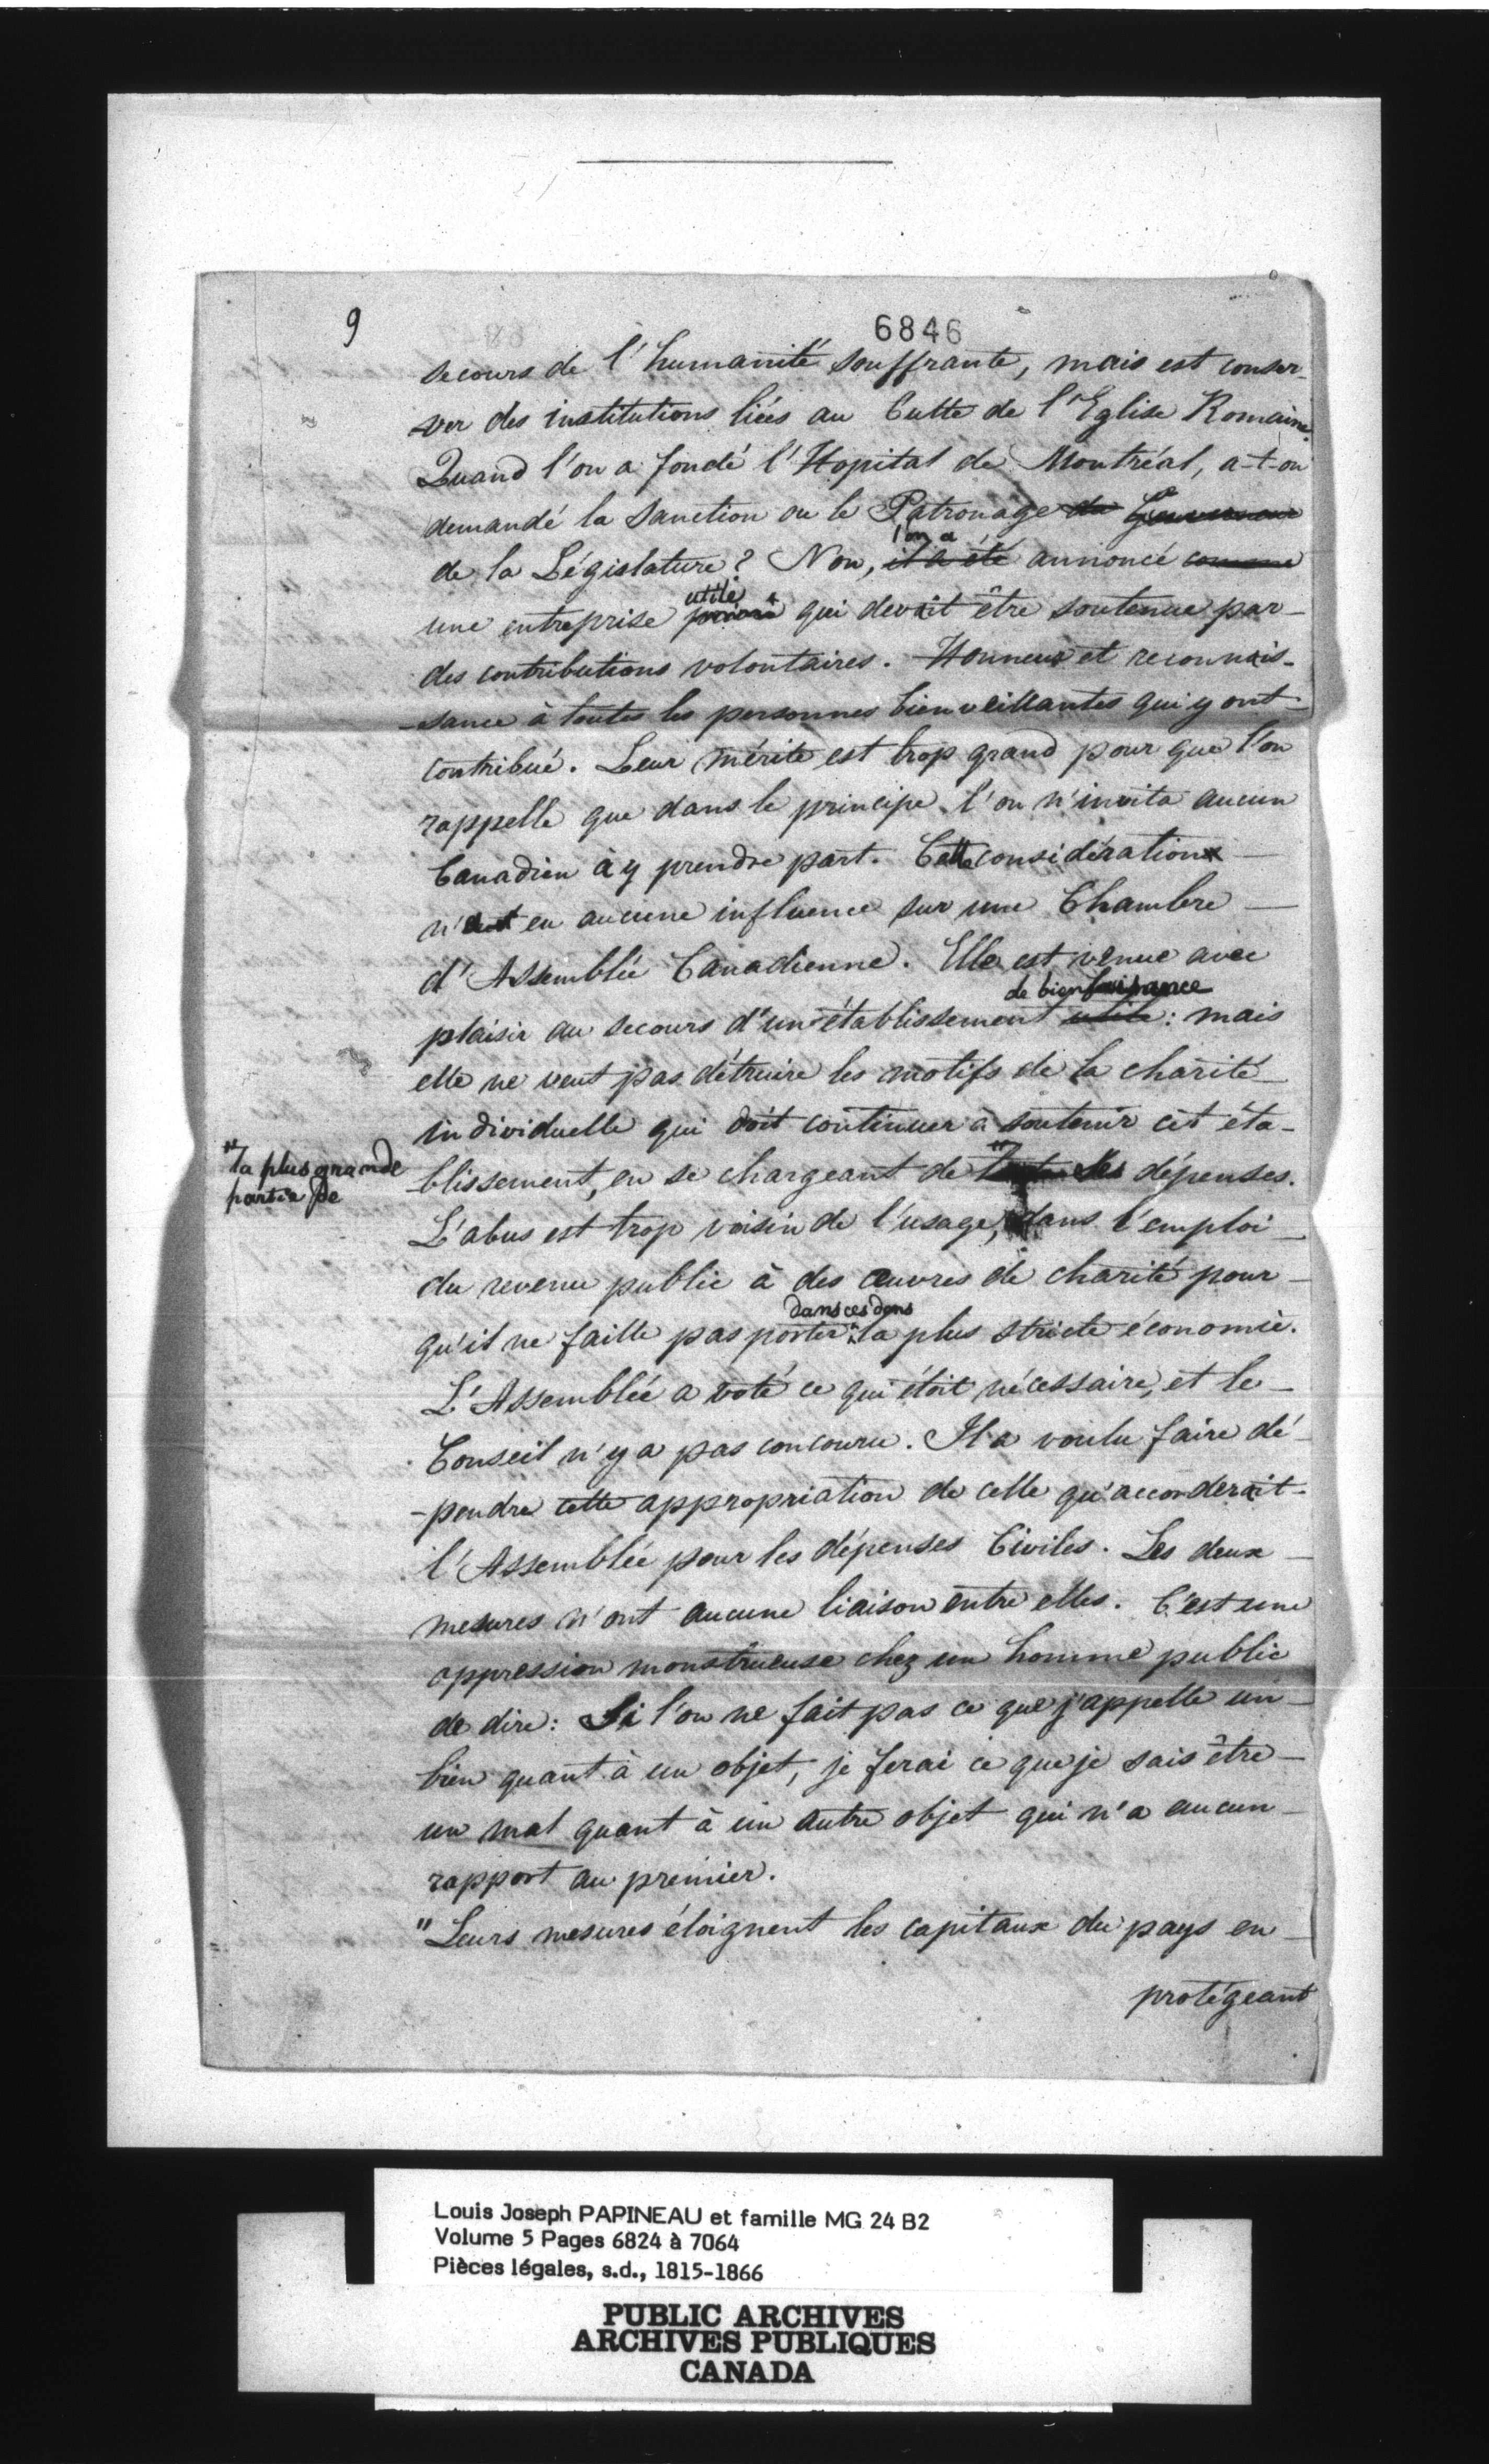 9
6846
secours de l'humanité souffrante, mais est conser-
ver des institutions liées au Culte de l'Eglise Romaine.
Quand l'on a fondé l'Hopital de Montréal, a-t-on
demandé la Sanction ou le Patronage du Gouverneur
l'on a
de la Législature? Non, il a été annoncé comme
utile
une entreprise qui devait être soutenue par
des contributions volontaires. Honneur et reconnais-
-sance à toutes les personnes bienveillantes qui y ont
contribué. Leur mérite est trop grand pour que l'on
rappelle que dans le principe l'on n'invita aucun
Canadien à y prendre part. Cette considération
n'eut en aucune influence sur une Chambre
d'Assemblée Canadienne. Elle est venue avec
de bienfaisance
plaisir au secours d'un établissement utile: mais
elle ne veut pas détruire les motifs de la charité
individuelle qui doit continuer à soutenir cet éta-
"la plus grande
partie de
blissement, en se chargeant de toutes les dépenses.
L'abus est trop voisin de l'usage, dans l'emploi
du revenu public à des œuvres de charité pour
dans ces dons
qu'il ne faille pas porter la plus stricte économie.
L'Assemblée a voté ce qui étoit nécessaire, et le
Conseil n'y a pas concouru. Il a voulu faire dé-
-pendre cette appropriation de celle qu'accorderait
l'Assemblée pour les dépenses Civiles. Les deux
mesures n'ont aucune liaison entre elles. C'est une
oppression monstrueuse chez un homme public
de dire: Si l'on ne fait pas ce que j'appelle un
bien quant à un objet, je ferai ce que je sais être
un mal quant à un autre objet qui n'a aucun
rapport au premier.
"Leurs mesures éloignent les capitaux du pays en
protégeant
Louis Joseph PAPINEAU et famille MG 24 B2
Volume 5 Pages 6824 à 7064
Pièces légales, s.d., 1815-1866
PUBLIC ARCHIVES
ARCHIVES PUBLIQUES
CANADA